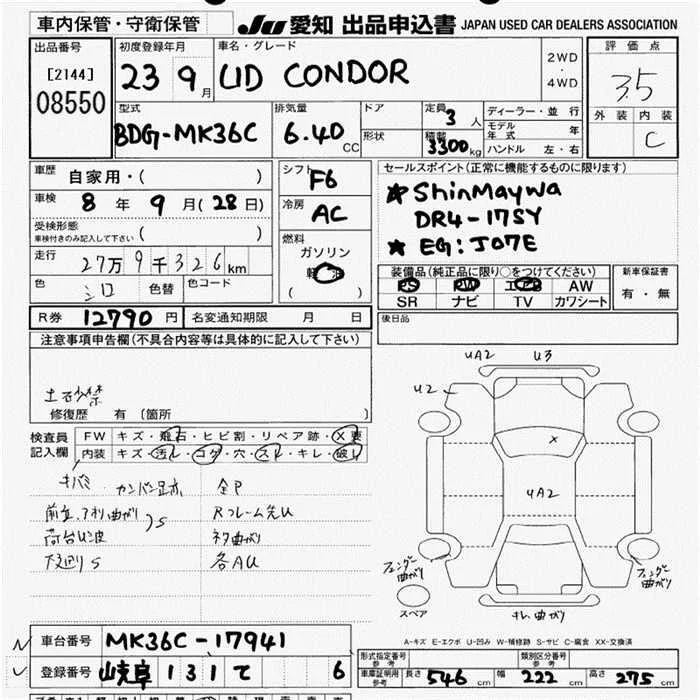 車内保管・守衛保管
JU 愛知 出品申込書 JAPAN USED CAR DEALERS ASSOCIATION
出品番号
[2144]
08550
初度登録年月
23 9月
車名・グレード
UD CONDOR
2WD
・
4WD
評価点
3.5
外装 内装
C
型式
BDG-MK36C
排気量
6.40 CC
ドア
形状
定員 3 人
積載 3300 kg
ディーラー・並行
モデル年式 年
ハンドル 左・右
車歴 自家用・( )
車検 8 年 9 月(28日)
受検形態
車検付きのみ記入して下さい ( )
走行 27万9千326km
色 シロ 色替 色コード
シフト F6
冷房 AC
燃料
ガソリン
軽油
( )
セールスポイント(正常に機能するものに限ります)
★ ShinMaywa
DR4-17SY
★ EG:J07E
装備品(純正品に限り○をつけてください)
PS PW エアB AW
SR ナビ TV カワシート
新車保証書
有・無
R券 12790 円 名変通知期限 月 日
後日品
注意事項申告欄(不具合内容等は具体的に記入して下さい)
修復歴 有 〔箇所 〕
検査員
記入欄
FW キズ・飛石・ヒビ割・リペア跡・X要
内装 キズ・汚れ・コゲ・穴・スレ・キレ・破れ
キバミ カンバン足跡 全P
曲がり Rフレーム先U
S
荷台 曲がり
S 各AU
UA2 U3
U2
X
UA2
フェンダー曲がり
フェンダー曲がり
スペア
キレ曲がり
A-キズ E-エクボ U-凹み W-補修跡 S-サビ C-腐食 XX-交換済
車台番号 MK36C-17941
登録番号 岐阜 131 て 6
形式指定番号
参考
類別区分番号
参考
車庫証明用
参考
長さ 546 cm 幅 222 cm 高さ 275 cm